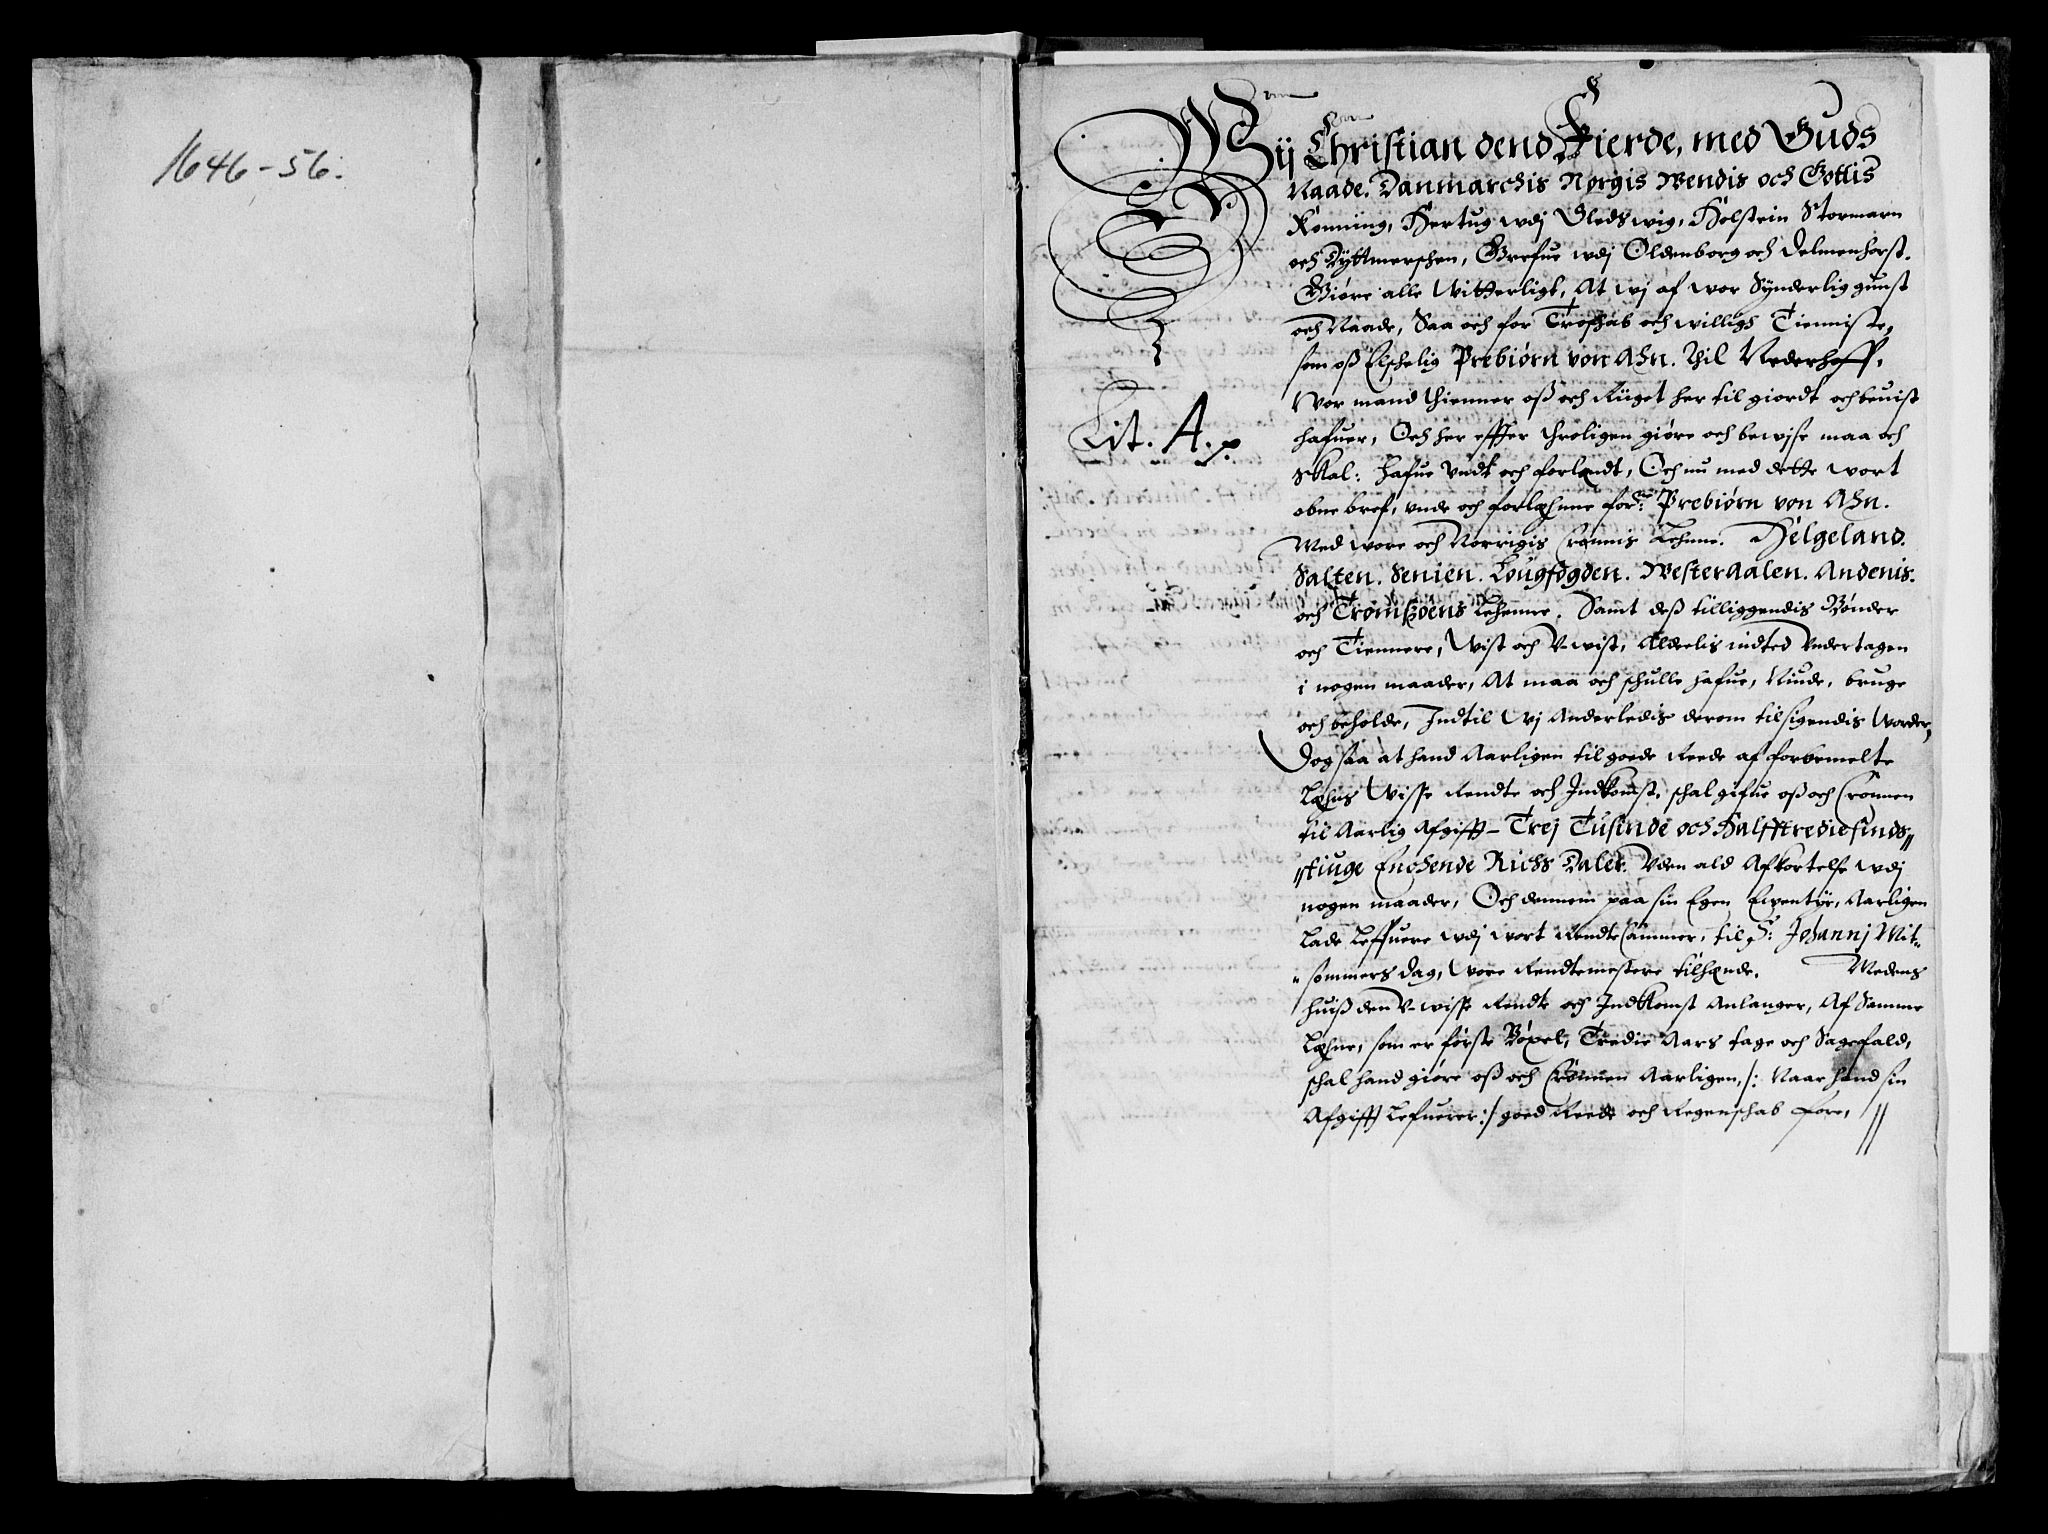 1646-56.
Wij Christian dend Fierde, med Guds
Naade. Danmarchis Norgis Wendis och Gottis
Konning, Hertug wdj Sleswig, Holstein Stormarn
och Dyttmerschen, Grefue wdj Oldenborg och Delmenhorst.
Giøre alle Witterligt, At wj af wor Synderlig gunst
och Naade, Saa och for Troschab och willigh Tienniste,
som oß Elschelig Prebiørn von Ahn. Thil Nederhoff,
Wor mand thienner oß och Riiget her til giordt och beuist
hafuer, Och her effter throligen giøre och bewise maa och
Skal: Hafue undt och forlendt, Och nu med dette wort
obne bref, unde och forlæhnne forn: Prebiørn von Ahn.
Med wore och Norrigis Cronnis Lehnne. Helgeland.
Salten. Senien. Lougfogden. Westeraalen. Andenis.
och Tromsøens Lehnne. Samt deß tilliggendis Bønder
och Tiennere, Wist och V-wist, Aldelis indted Undertagen
i nogen maader, At maa och schulle hafue, Niude, bruge
och beholde, Indtil Wj Anderledis derom tilsigendis Worder,
Dog saa at hand Aarligen til goede Reede af forbemelte
Læhns Wisse Rendte och Indkomst, schal gifue oß och Cronnen
til Aarlig Afgifft - Trej Tusinde och Halfftrediesinds //
// tiuge Enchende Richs Daler. Uden ald Afkortelse wdj
nogen maader, Och dennem paa sin Egen Euentyr, Aarligen
Lade Leffuere wdj wort Rendte Cammer, til S: Johannj Mit=
= sommers dag, wore Rendtemestere tilhænde. Medens
huiß den V-wisse Rendte och Indkomst Anlanger, Af Samme
Læhne, som er første Bøxel, Tredie Aars tage och Sagefald,
schal hand giøre oß och Cronnen Aarligen, /: Naar hand sin
Afgifft Lefuerer :/ goed Reede och Regenschab fore, //
Lit. A.